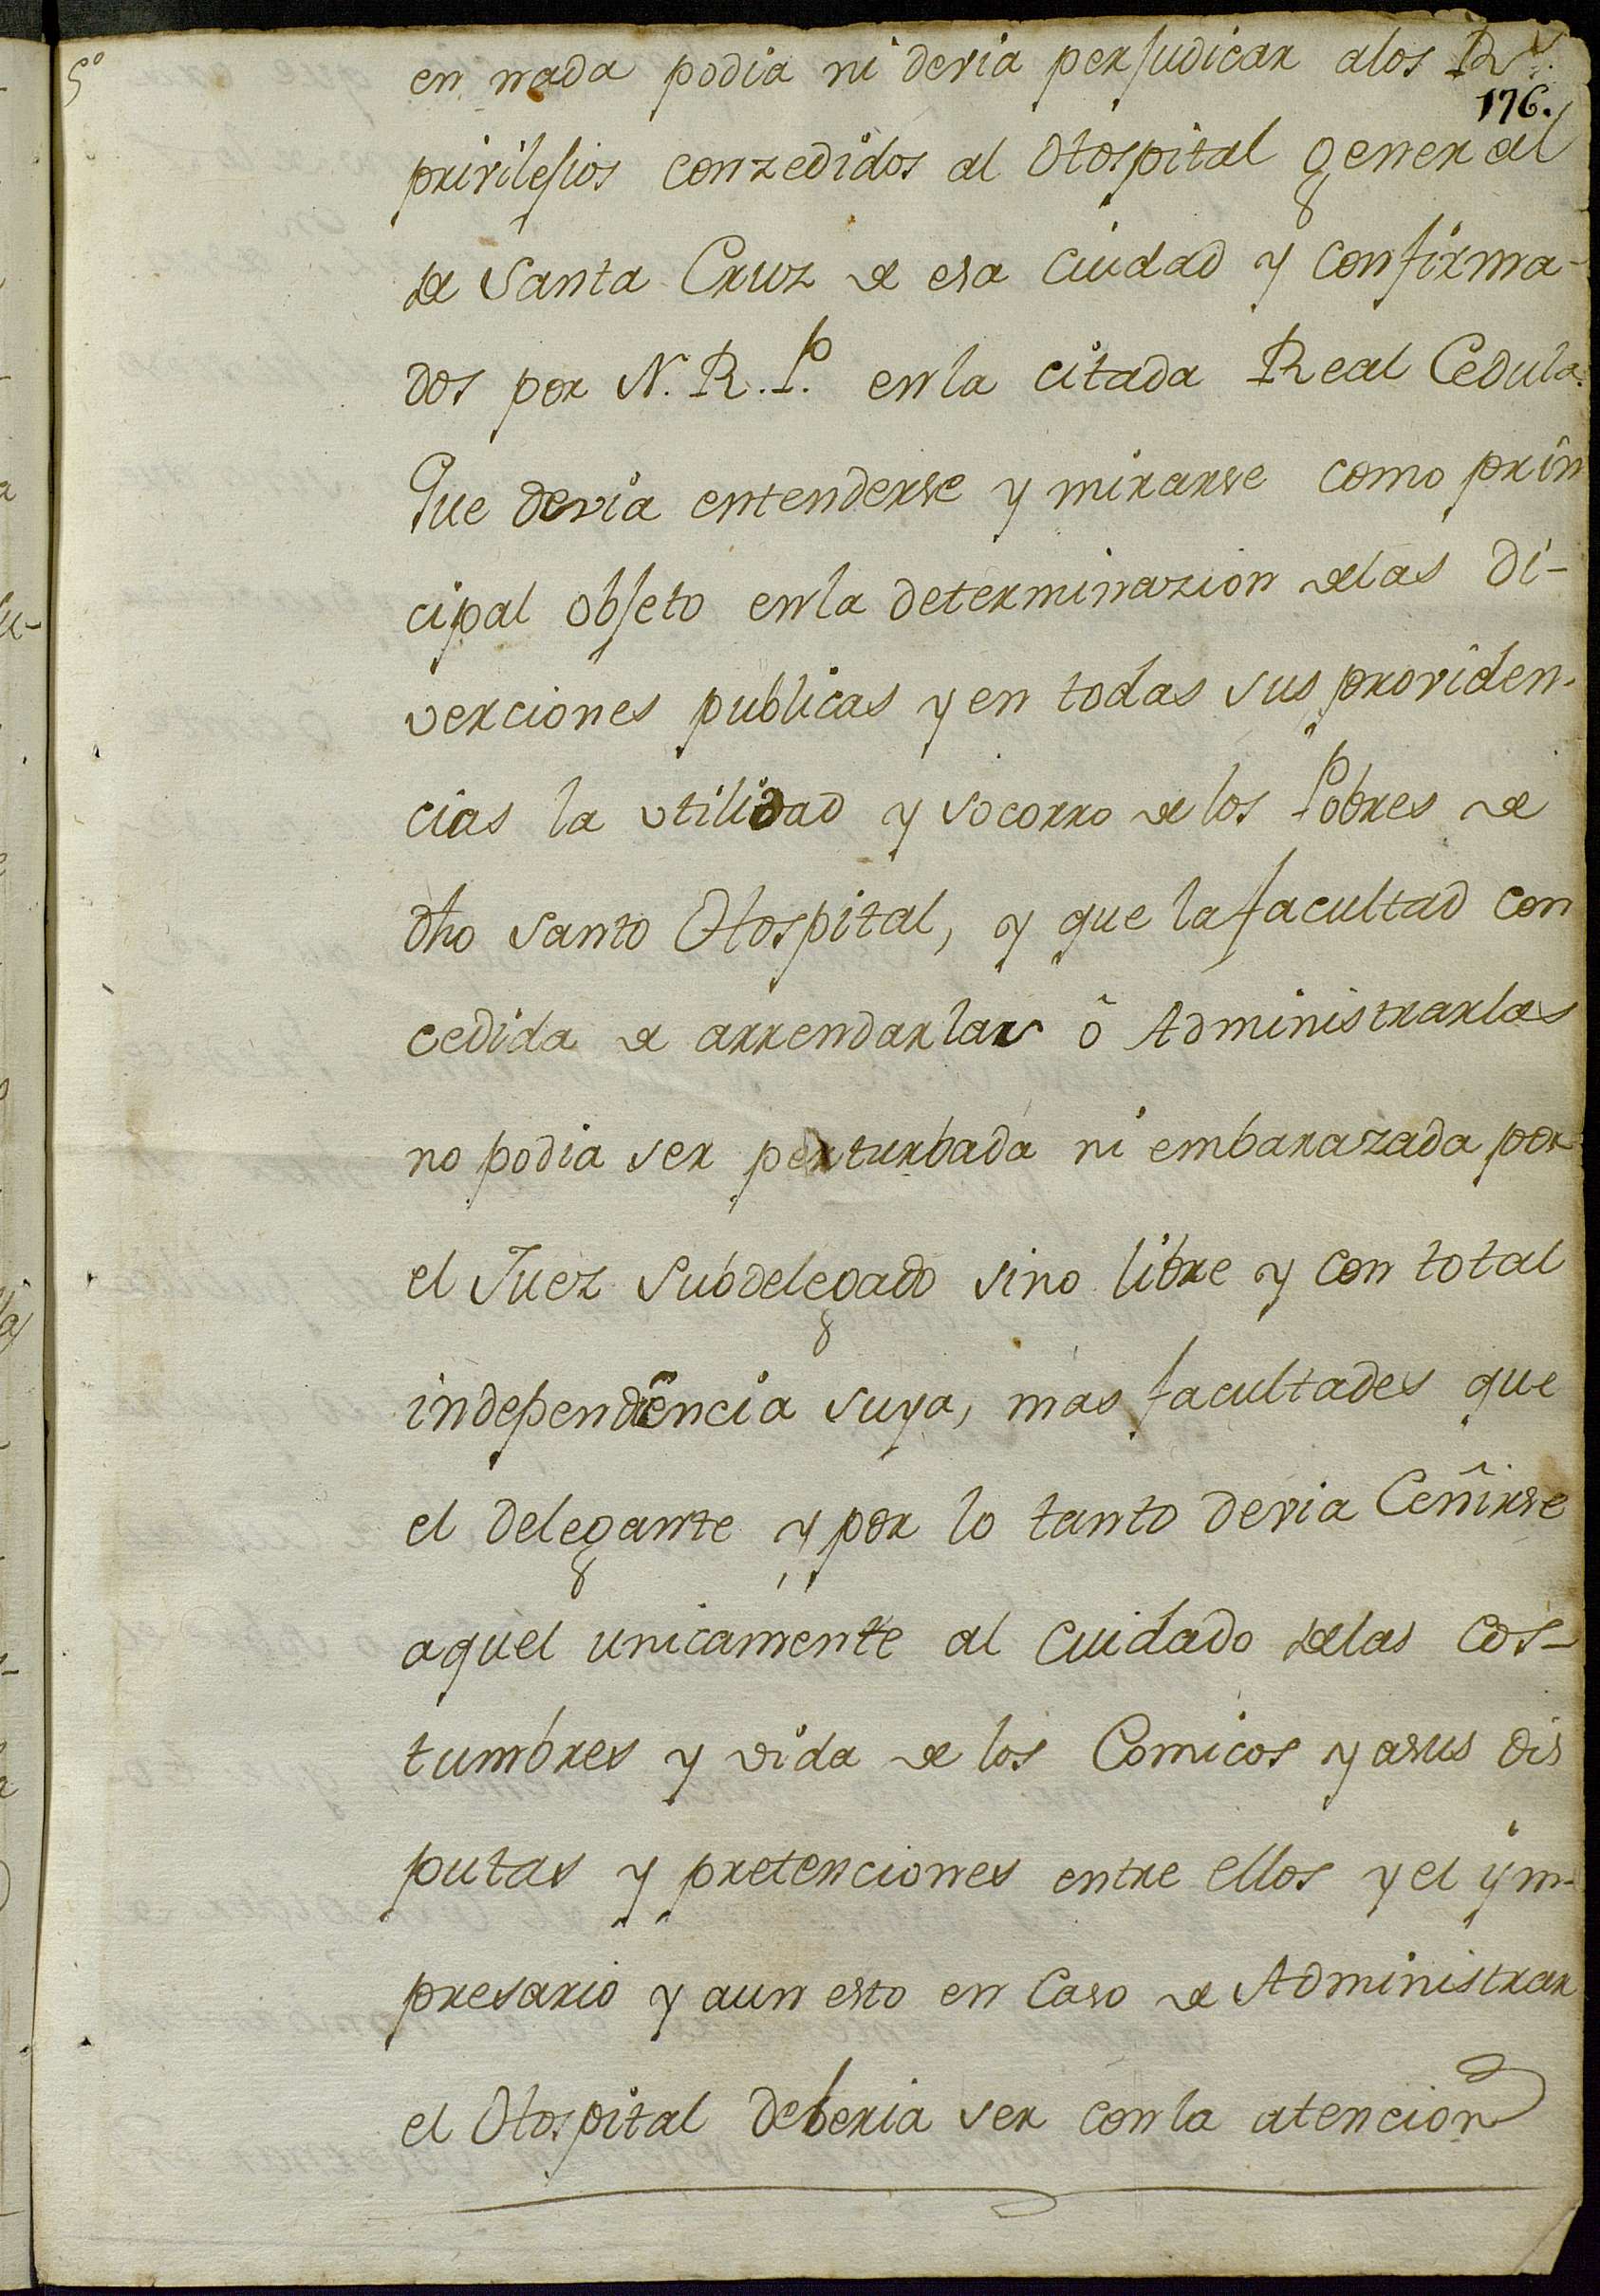 5º
en nada podia ni devia perjudicar alos Rˢ.
176.
privilejios conzedidos al Hospital general
de Santa Cruz de esa Ciudad y confirma-
dos por N. R. P. en la citada Real Cedula.
Que devia entenderse y mirarse como prin
cipal objeto en la determinazion delas di-
verciones publicas y en todas sus providen-
cias la vtilidad y socorro de los Pobres de
dho Santo Hospital, y que la facultad con
cedida de arrendarlas ô Administrarlas
no podia ser perturbada ni embarazada por
el Juez Subdelegado sino libre y con total
independencia suya, mas facultades que
el delegante y por lo tanto devia Ceñirse
aquel unicamente al cuidado delas cos-
tumbres y vida de los Comicos y asus dis
putas y pretenciones entre ellos y el ym-
presario y aun esto en Caso de Administrar
el Hospital deberia ser con la atencion